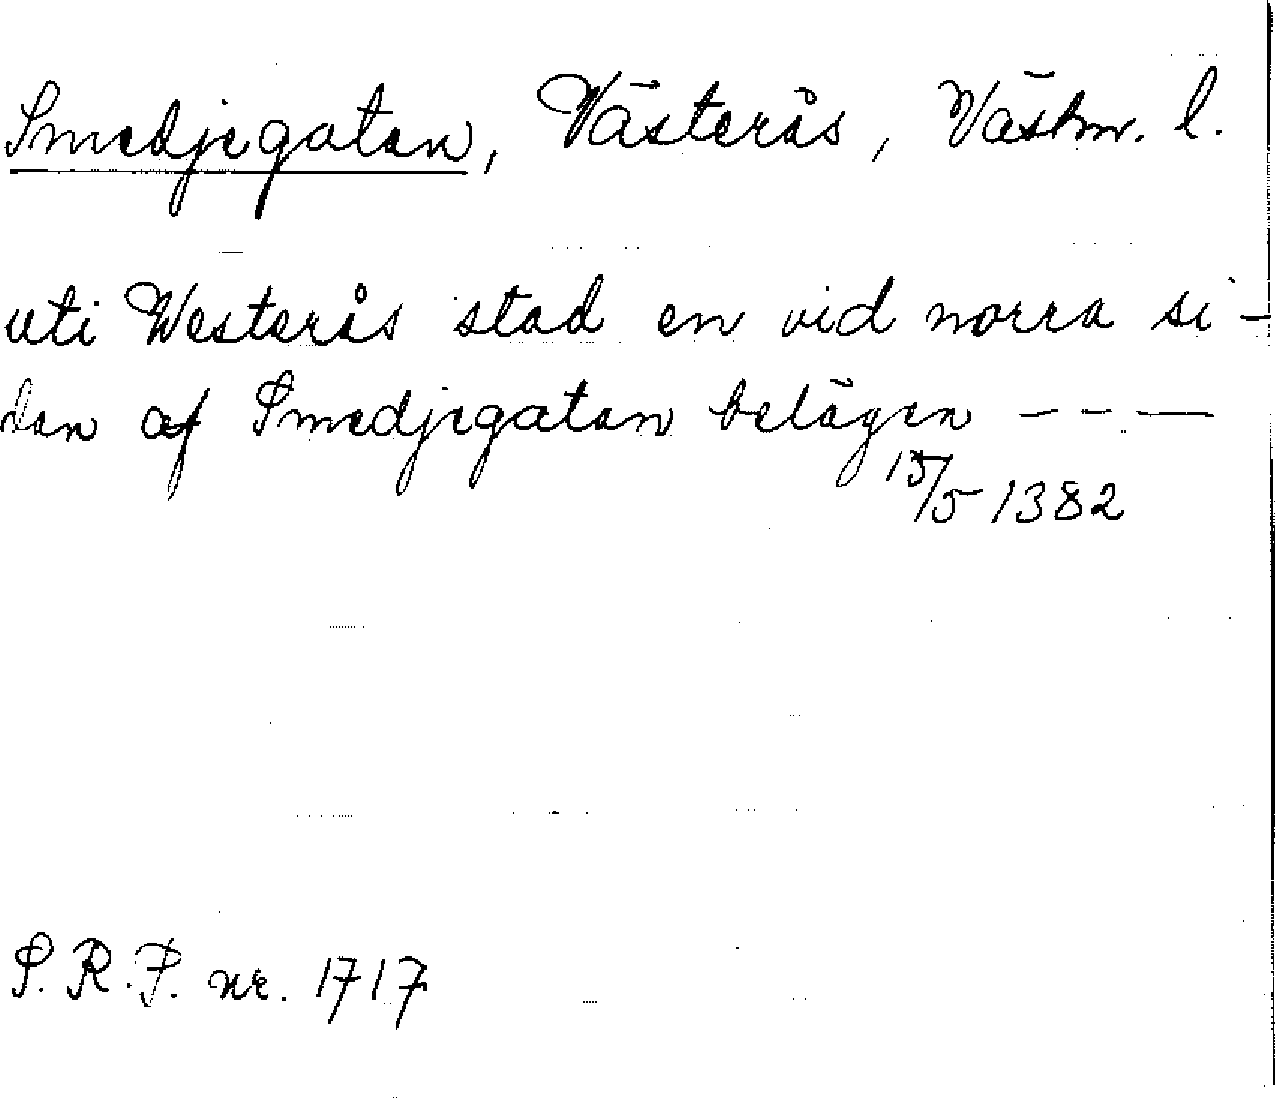 Smedjegatan, Västerås, Västm. l.
uti Westerås stad en vid norra si-
dan af Smedjegatan belägen - - -
15/5 1382
S.R.P. nr. 1717